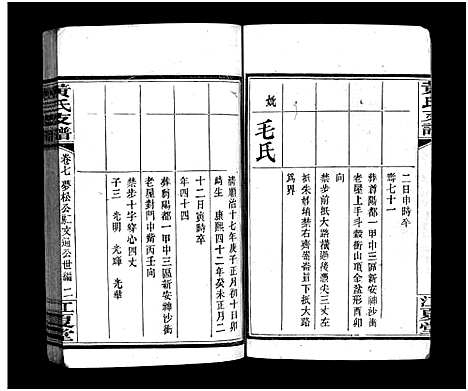 黃氏支譜
江夏堂
二日申時卒
壽七十一
葬酋陽都一甲中三區新安神沙衝
老屋上手斗穀衝山頂金盆形酉卯
向
禁步前抵大路橫過後憑尖三丈左
抵朱姓墳禁石齊
直下抵大路
爲界
妣
毛氏
清順治十七年庚子正月初十日卯
時生
康熙四十二年癸未正月二
十二日寅時卒
年四十四
葬酋陽都一甲中三區新安神沙衝
老屋對門中
丙壬向
禁步十字穿心四丈
子三
光明
光輝
光華
黃氏支譜
卷七
夢松公
文
公世編
二
江夏堂